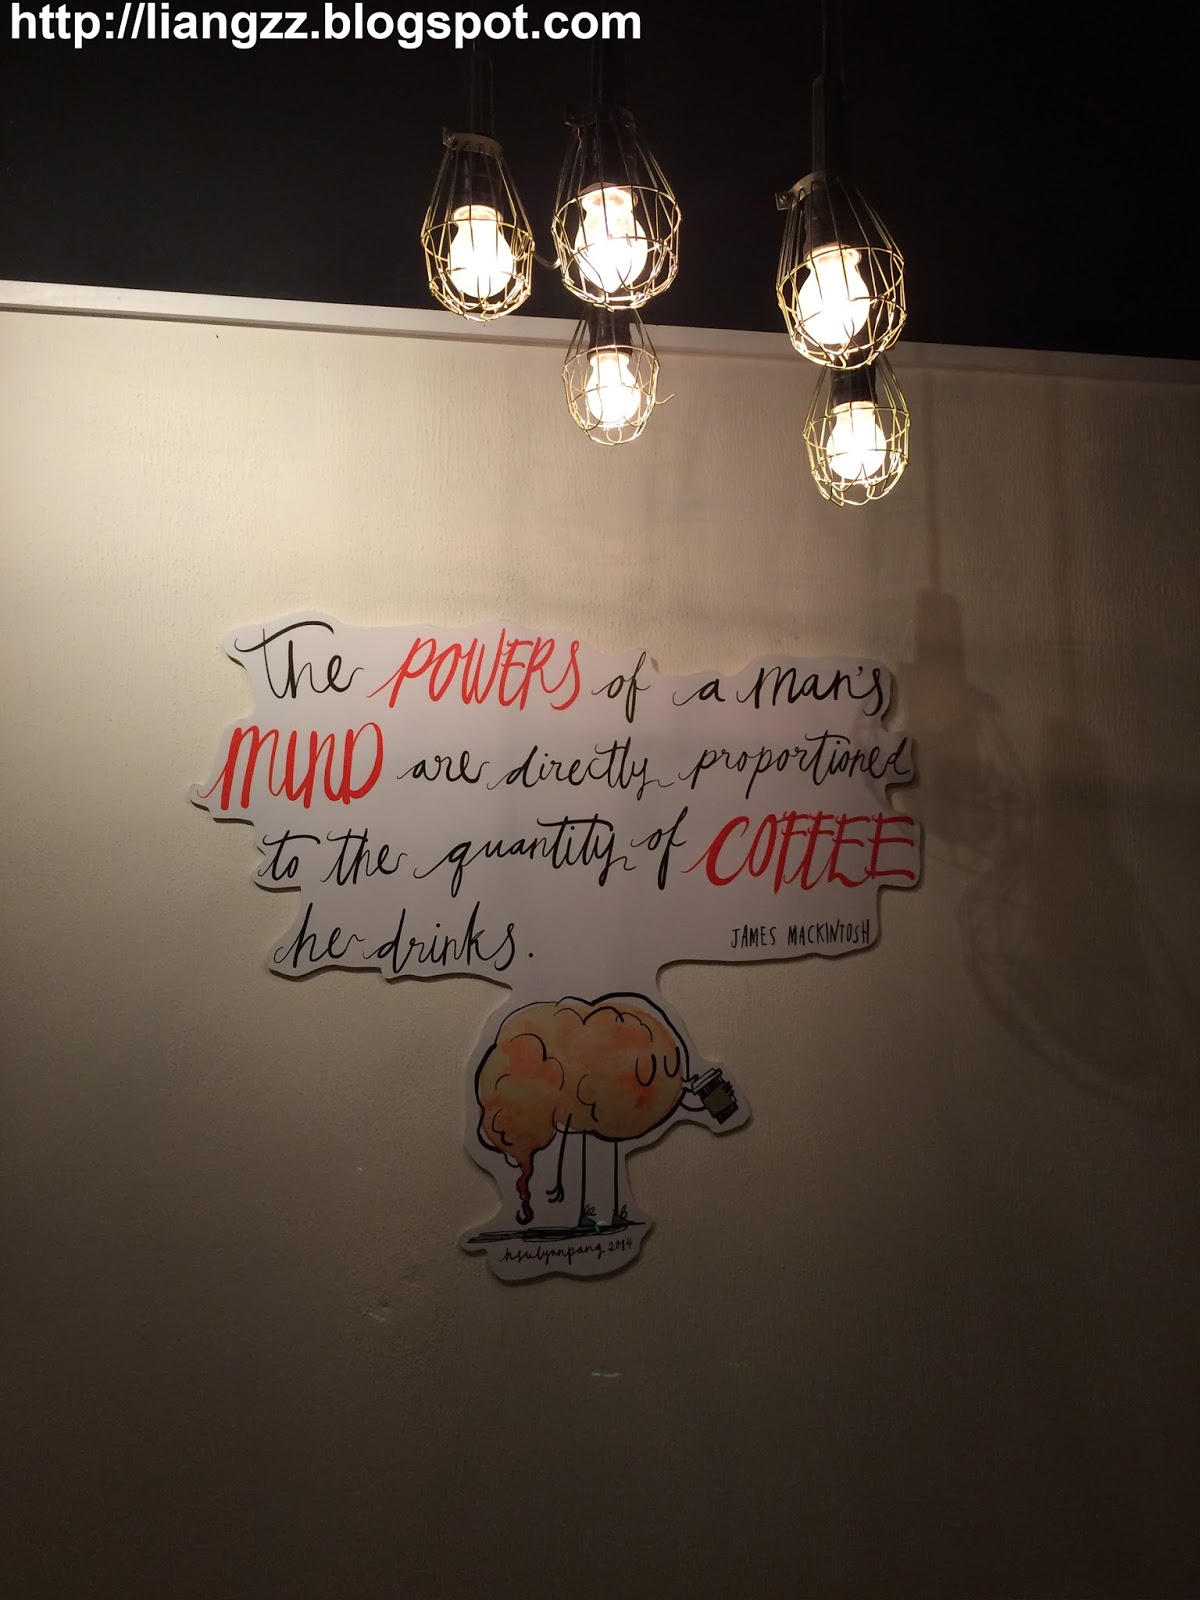 http://liangzz.blogspot.com
the POWERS of a man's
MIND are directly proportioned
to the quantity of COFFEE
he drinks.
JAMES MACKINTOSH
hsulynnpang 2014